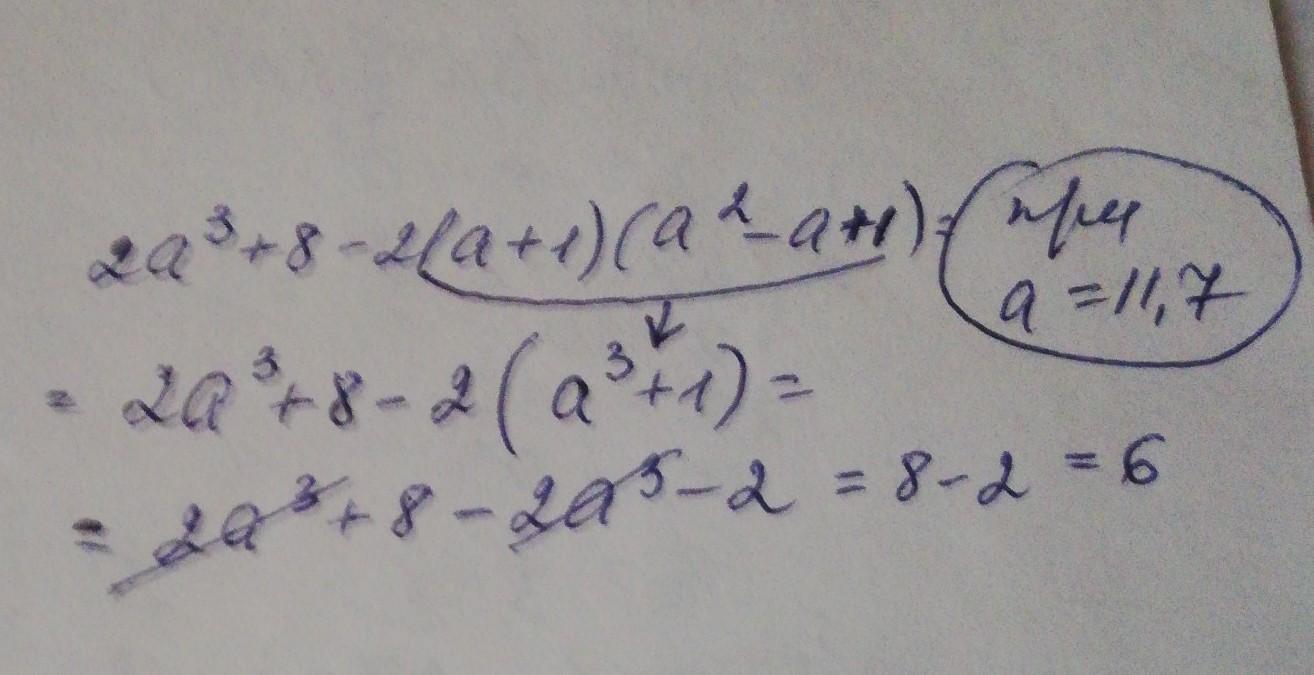 2a³+8-2(a+1)(a²-a+1)= при
a=11,7
= 2a³+8-2(a³+1)=
= 2a³+8-2a³-2=8-2=6